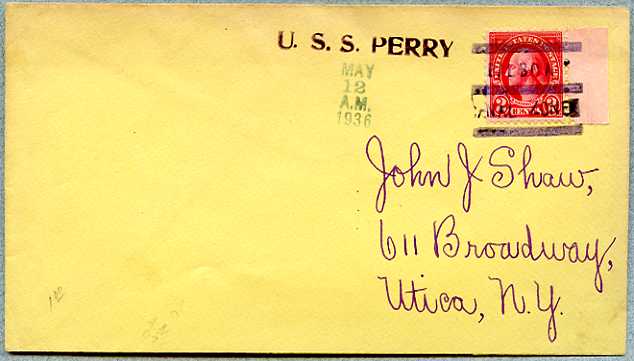 U. S. S. PERRY
MAY
12
A.M.
1936
UNITED STATES POSTAGE
2 CENTS 2
John J Shaw,
611 Broadway,
Utica, N.Y.